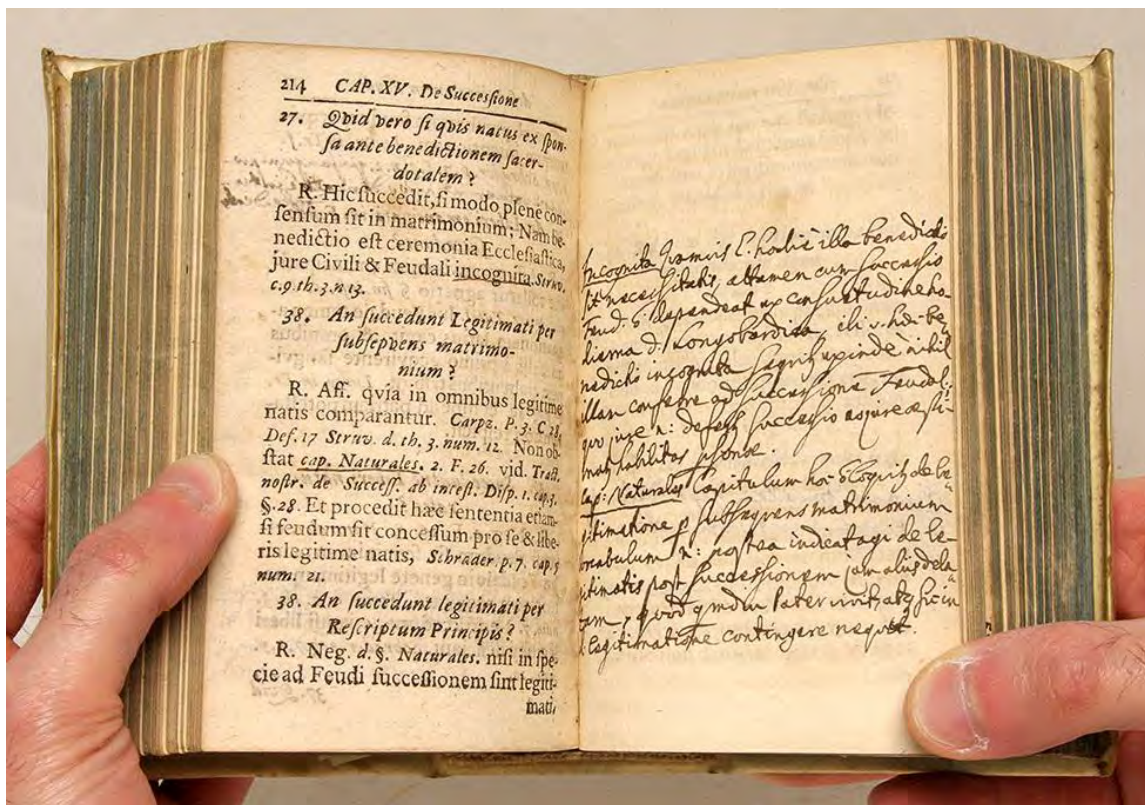 214 CAP. XV. De Succeſſione
27. Qvid vero ſi qvis natus ex ſpon-
ſa ante benedictionem ſacer-
dotalem?
R. Hic ſuccedit, ſi modo plene con-
ſenſum ſit in matrimonium; Nam be-
nedictio eſt ceremonia Eccleſiaſtica,
jure Civili & Feudali incognita. Struv.
c. 9. th. 3. n 13.
38. An ſuccedunt Legitimati per
ſubſeqvens matrimo-
nium?
R. Aff. qvia in omnibus legitime
natis comparantur. Carpz. P. 3. C 28,
Def. 17 Struv. d. th. 3. num. 12. Non ob-
ſtat cap. Naturales. 2. F. 26. vid. Tract.
noſtr. de Succeſſ. ab inteſt. Diſp. 1. cap. 3.
§. 28. Et procedit hæc ſententia etiam
ſi feudum ſit conceſſum pro ſe & libe-
ris legitime natis, Schrader. p. 7. cap. 5
num. 21.
38. An ſuccedunt legitimati per
Reſcriptum Principis?
R. Neg. d. §. Naturales. niſi in ſpe-
cie ad Feudi ſucceſſionem ſint legiti-
mati,
Incognita hodie illa benedictio
ſit neceſſitatis, attamen cum ſucceſſio
Feud. dependeat ex conſuetudine ho-
Longobardica,
nedictio incognita exinde nihil
illam conferre ad ſucceſſionem Feudal:
jure ſucceſſio
habilitas
Cap: Naturales Capitulum hoc loqvitur de le-
gitimatione ſubſeqvens matrimonium
vocabulum poſtea indicat agi de le-
gitimatis poſt ſucceſſionem jam aliis dela-
tam, qvod Pater vivit, ſic in
Legitimatione contingere neqvit.